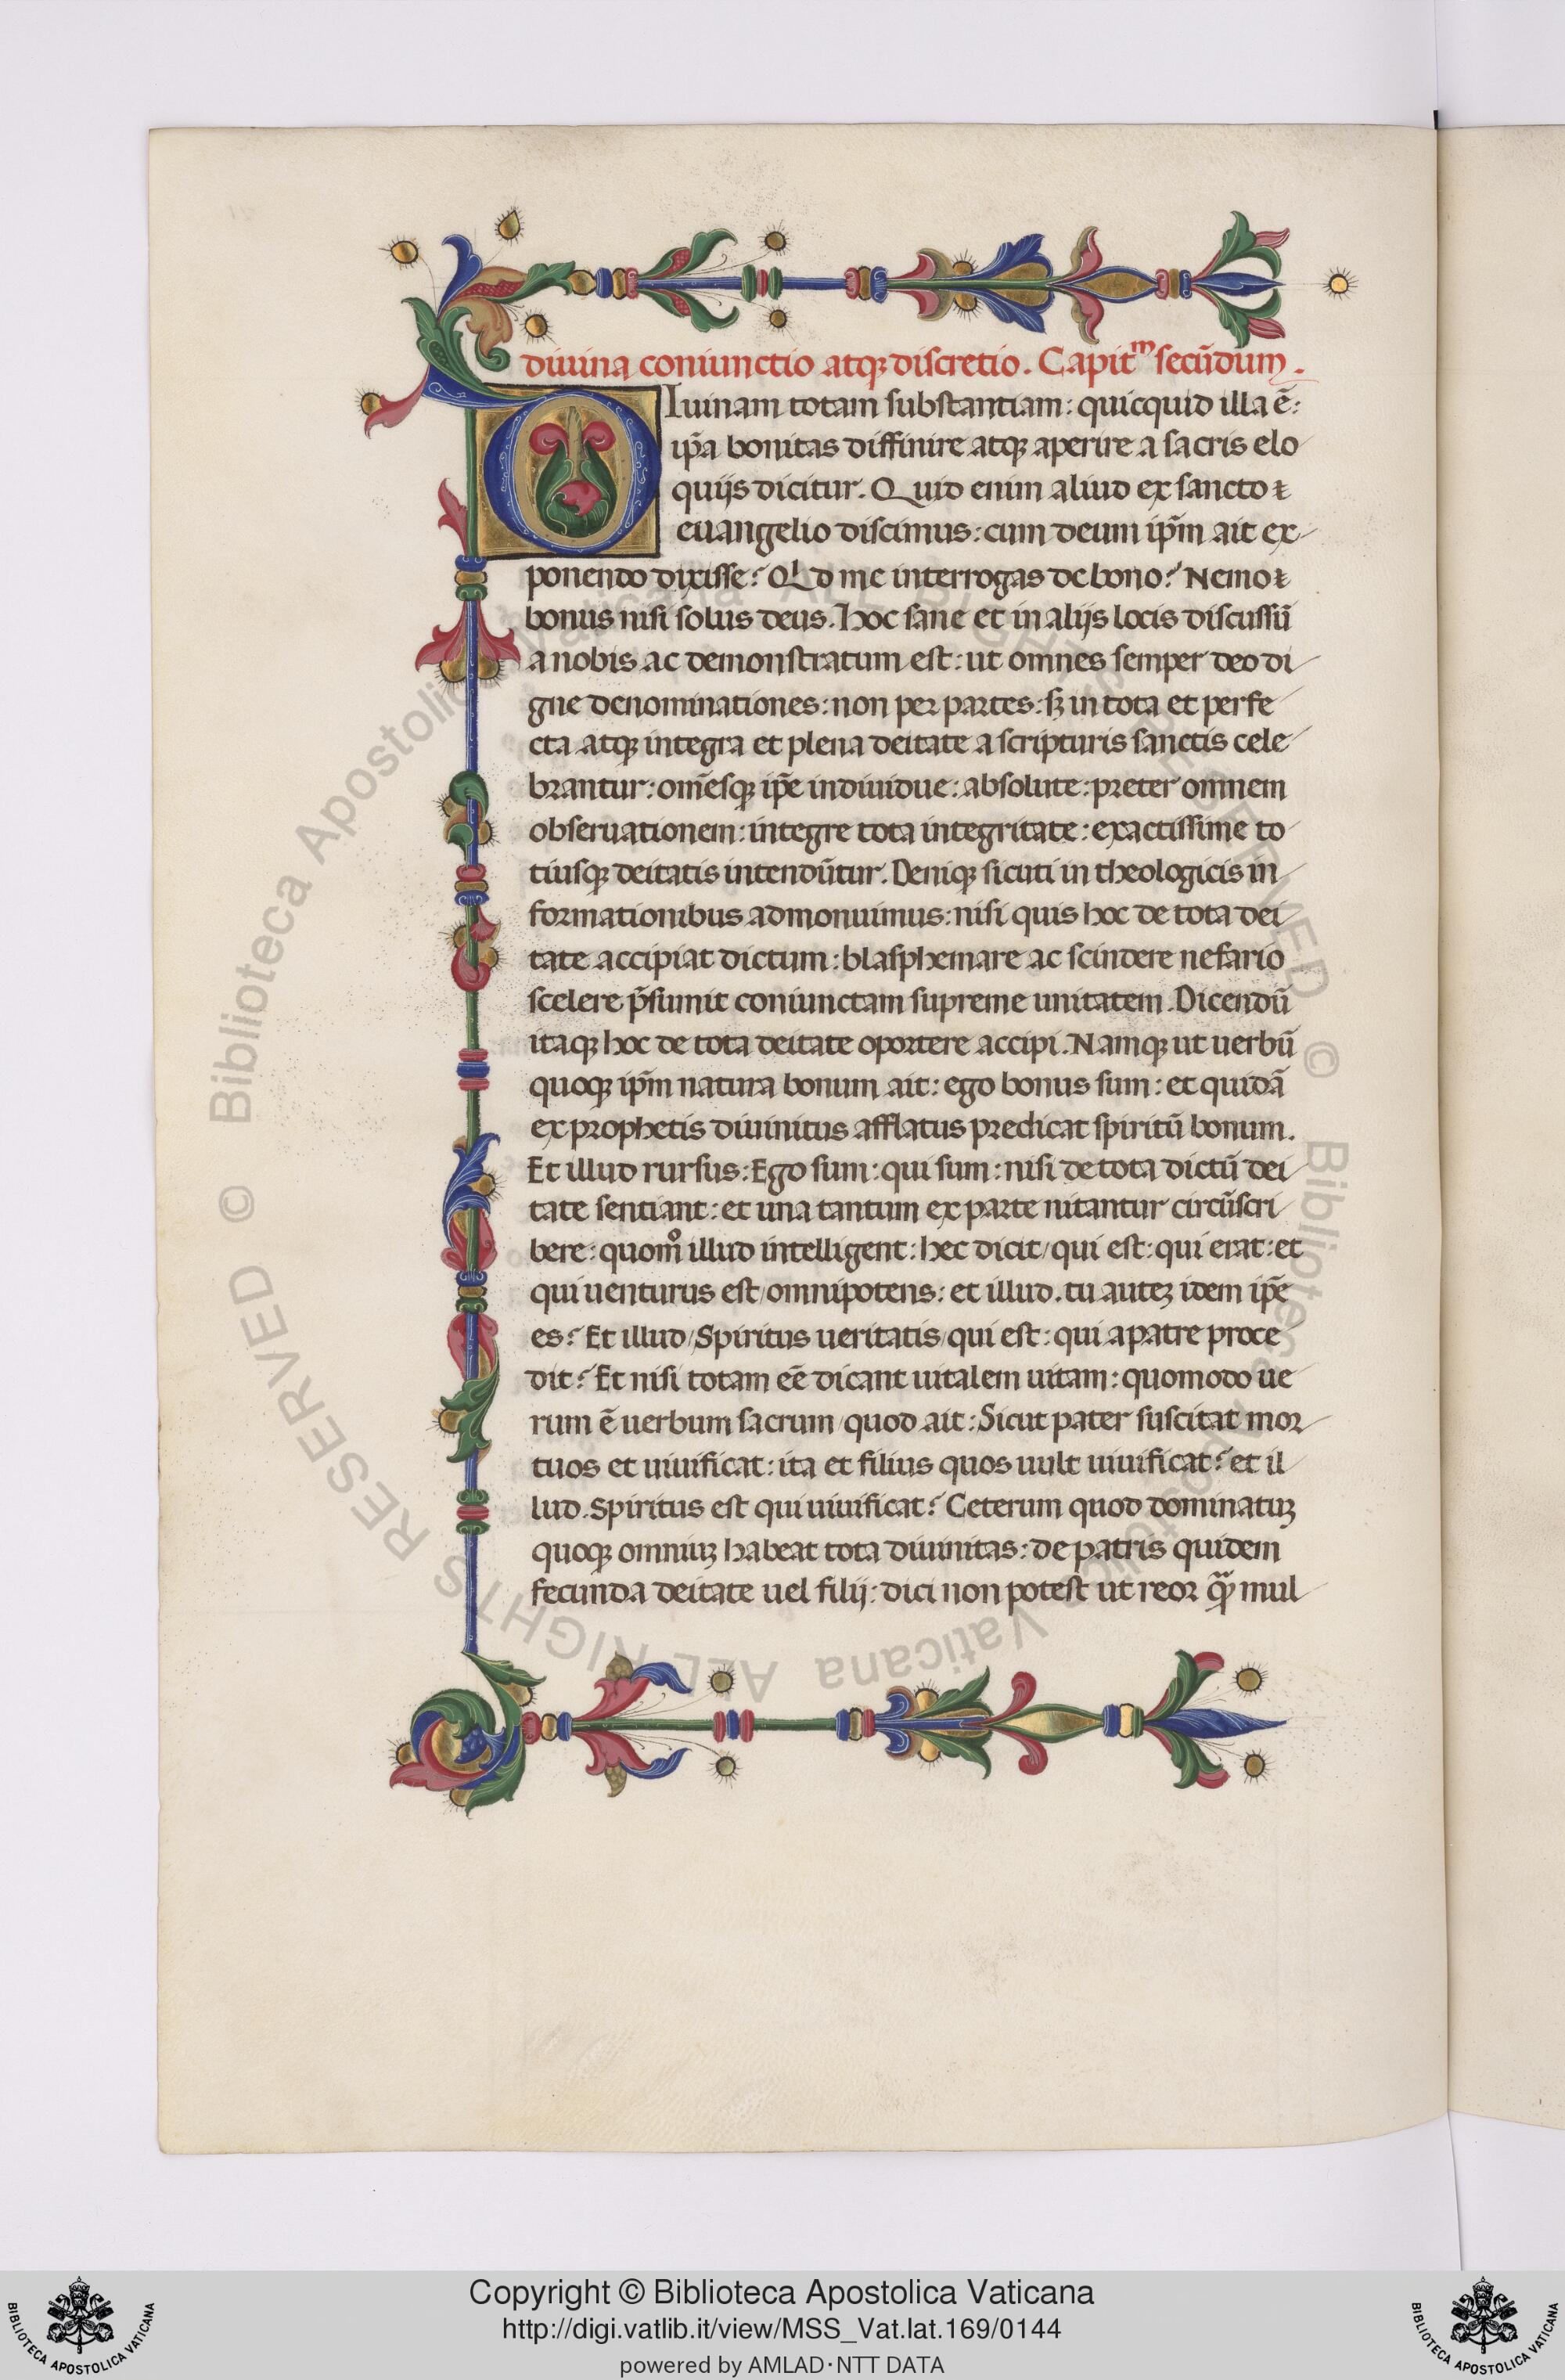 diuina coniunctio atqꝫ discretio. Capitᵐ secūdum.
DIuinam totam substantiam: quicquid illa ē:
ip̄a bonitas diffinire atqꝫ aperire a sacris elo
quijs dicitur. Quid enim aliud ex sancto
euangelio discimus: cum deum ip̄m ait ex
ponendo dixisse? Qd me interrogas de bono? Nemo
bonus nisi solus deus. Hoc sane et in alijs locis discussū
a nobis ac demonstratum est: ut omnes semper deo di
gne denominationes: non per partes: sꝫ in tota et perfe
cta atqꝫ integra et plena deitate a scripturis sanctis cele
brantur: om̄esqꝫ ip̄e indiuidue: absolute: preter omnem
obseruationem: integre tota integritate: exactissime to
tiusqꝫ deitatis intendūtur. Deniqꝫ sicuti in theologicis in
formationibus admonuimus: nisi quis hoc de tota dei
tate accipiat dictum: blasphemare ac scindere nefario
scelere p̄sumit coniunctam supreme unitatem. Dicendū
itaqꝫ hoc de tota deitate oportere accipi. Namqꝫ ut uerbū
quoqꝫ ip̄m natura bonum ait: ego bonus sum: et quidā
ex prophetis diuinitus afflatus predicat spiritū bonum.
Et illud rursus: Ego sum: qui sum: nisi de tota dictū dei
tate sentiant: et una tantum ex parte nitantur circūscri
bere: quomͦ illud intelligent: hec dicit/ qui est: qui erat: et
qui uenturus est/ omnipotens: et illud. tu auteꝫ idem ip̄e
es? Et illud/ Spiritus ueritatis/ qui est: qui a patre proce
dit? Et nisi totam eē dicant uitalem uitam: quomodo ue
rum ē uerbum sacrum/ quod ait: Sicut pater suscitat mor
tuos et uiuificat: ita et filius quos uult uiuificat? et il
lud. Spiritus est qui uiuificat? Ceterum quod dominatuꝫ
quoqꝫ omniuꝫ habeat tota diuinitas: de patris quidem
fecunda deitate uel filij: dici non potest ut reor qᷓꝫ mul
© Biblioteca Apostolica Vaticana ALL RIGHTS RESERVED © Biblioteca Apostolica Vaticana ALL RIGHTS RESERVED
Copyright © Biblioteca Apostolica Vaticana
http://digi.vatlib.it/view/MSS_Vat.lat.169/0144
powered by AMLAD·NTT DATA
BIBLIOTECA APOSTOLICA VATICANA
BIBLIOTECA APOSTOLICA VATICANA